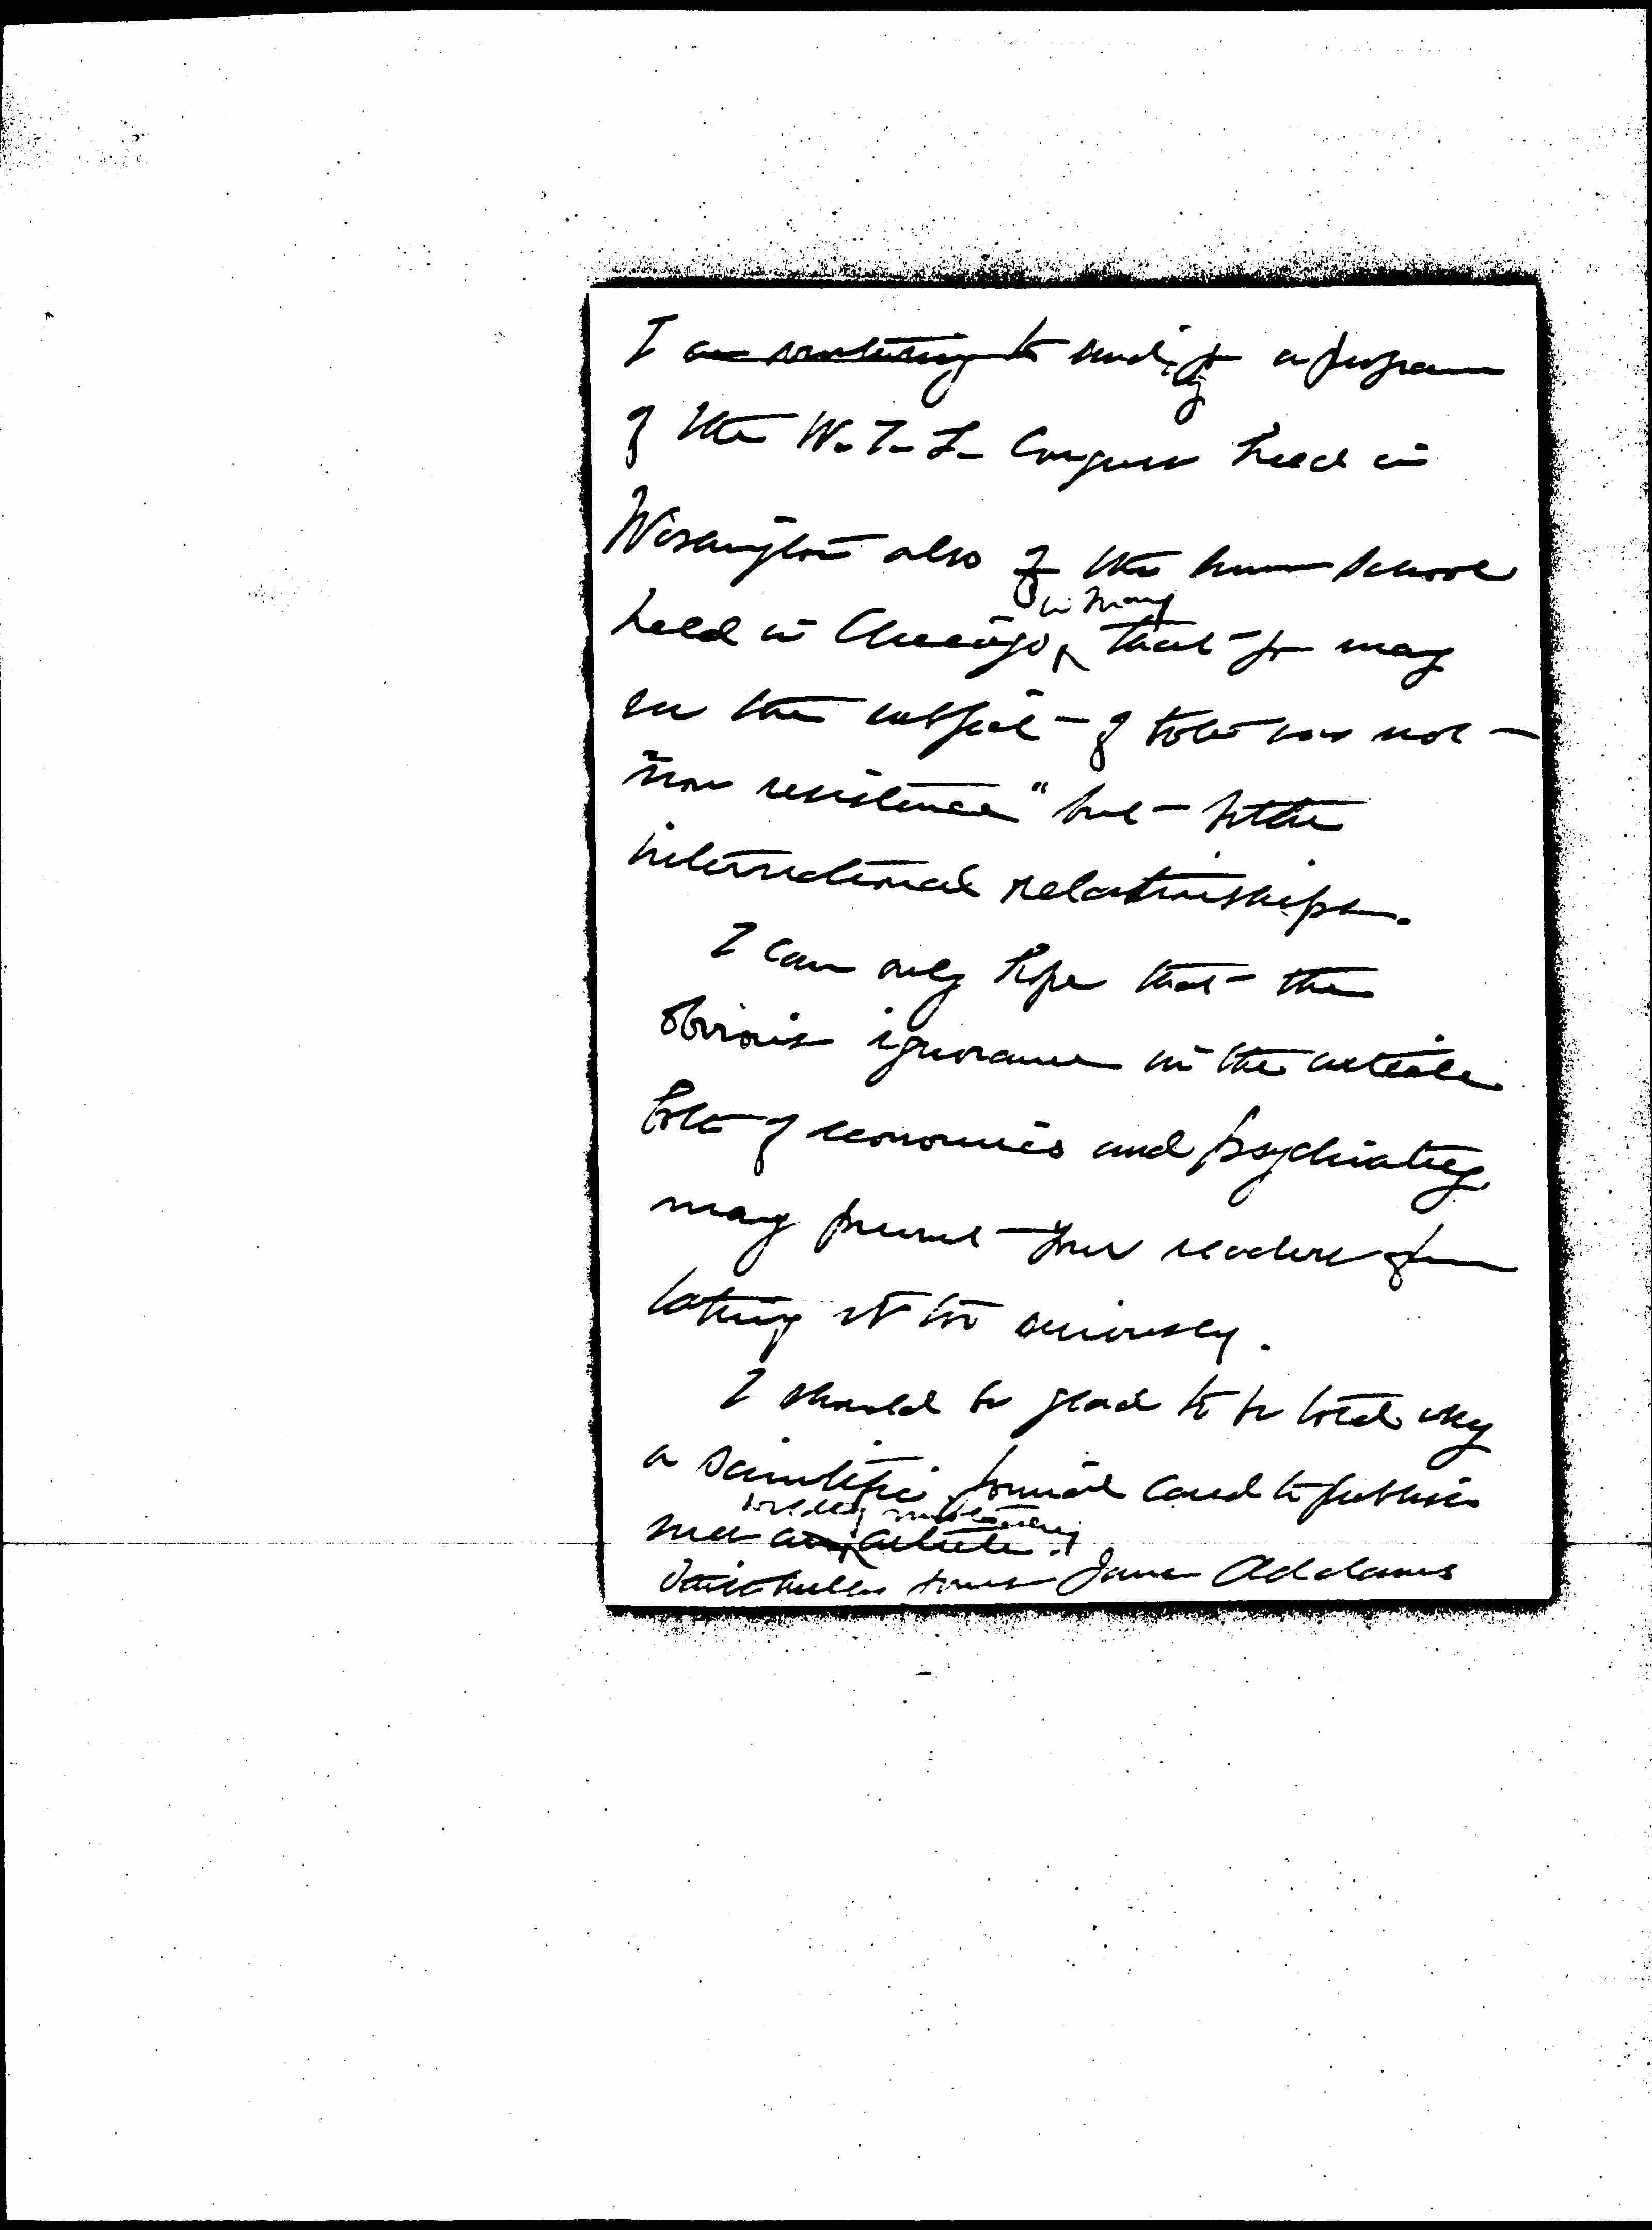 I am venturing to send you a program
of the W. I. L. Congress held in
Washington also of the summer school
held in Chicago, that you may
see the subject of both was not
"non resistence" but
international relationships.
I can only hope that the
obvious ignorance in the article
both of economics and psychiatry
may prevent your readers from
taking it too seriously.
I should be glad to be told why
a scientific journal cared to publish
such an article.
Faithfully yours Jane Addams